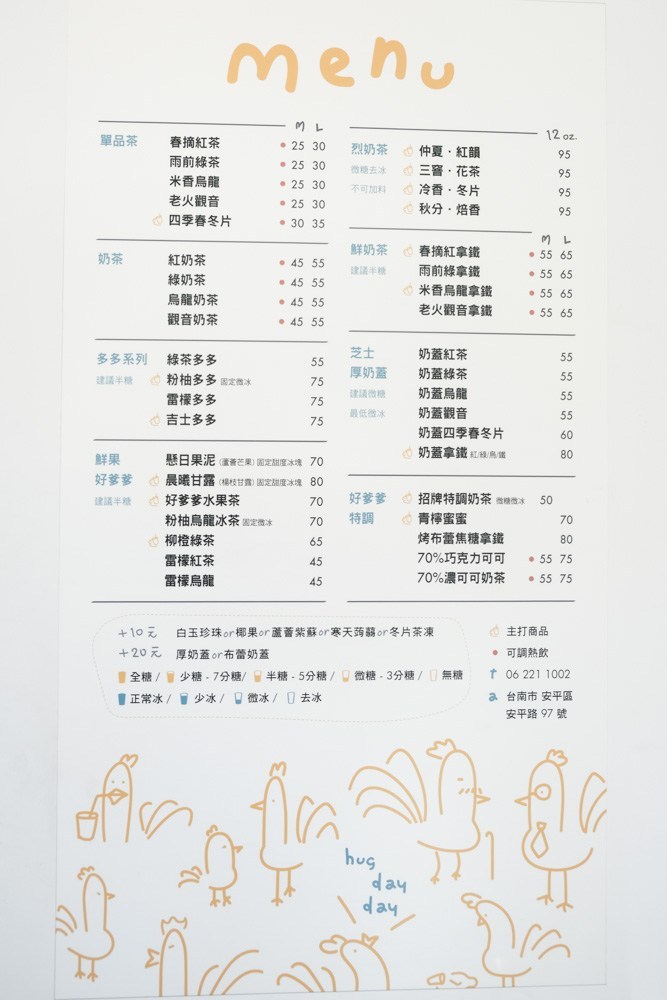 menu
M L
單品茶 春摘紅茶 25 30
雨前綠茶 25 30
米香烏龍 25 30
老火觀音 25 30
四季春冬片 30 35
奶茶 紅奶茶 45 55
綠奶茶 45 55
烏龍奶茶 45 55
觀音奶茶 45 55
多多系列 綠茶多多 55
建議半糖 粉柚多多 固定微冰 75
雷檬多多 75
吉士多多 75
鮮果 懸日果泥 (蘆薈芒果) 固定甜度冰塊 70
好爹爹 晨曦甘露 (楊枝甘露) 固定甜度冰塊 80
建議半糖 好爹爹水果茶 70
粉柚烏龍冰茶 固定微冰 70
柳橙綠茶 65
雷檬紅茶 45
雷檬烏龍 45
12 oz.
烈奶茶 仲夏·紅韻 95
微糖去冰 三窨·花茶 95
不可加料 冷香·冬片 95
秋分·焙香 95
M L
鮮奶茶 春摘紅拿鐵 55 65
建議半糖 雨前綠拿鐵 55 65
米香烏龍拿鐵 55 65
老火觀音拿鐵 55 65
芝士 奶蓋紅茶 55
厚奶蓋 奶蓋綠茶 55
建議微糖 奶蓋烏龍 55
最低微冰 奶蓋觀音 55
奶蓋四季春冬片 60
奶蓋拿鐵 紅/綠/烏/鐵 80
好爹爹 招牌特調奶茶 微糖微冰 50
特調 青檸蜜蜜 70
烤布蕾焦糖拿鐵 80
70%巧克力可可 55 75
70%濃可可奶茶 55 75
+10元 白玉珍珠or椰果or蘆薈紫蘇or寒天蒟蒻or冬片茶凍
+20元 厚奶蓋or布蕾奶蓋
全糖 / 少糖 - 7分糖/ 半糖 - 5分糖/ 微糖 - 3分糖/ 無糖
正常冰 / 少冰 / 微冰 / 去冰
主打商品
可調熱飲
t 06 221 1002
a 台南市 安平區
安平路 97 號
hug
day
day